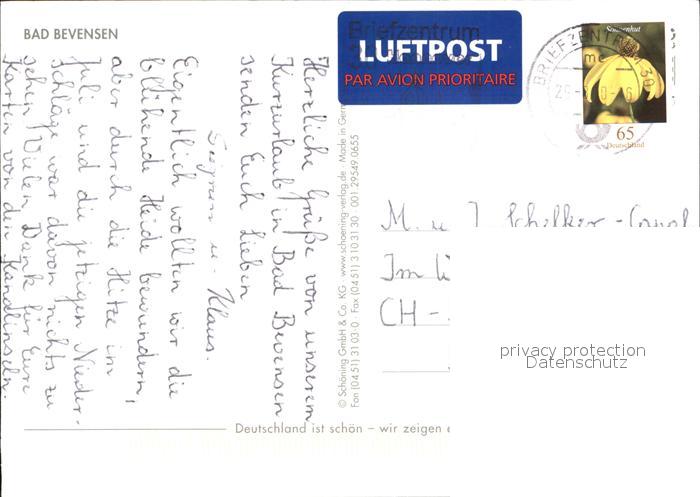 BAD BEVENSEN
Herzliche Grüße von unserem
Kurzurlaub in Bad Bevensen
senden Euch Lieben
Sigrun u. Klaus.
Eigentlich wollten wir die
blühende Heide bewundern,
aber durch die Hitze im
Juli und die jetzigen Nieder-
schläge war davon nichts zu
sehen. Vielen Dank für Eure
Karten von den Kanalinseln.
© Schöning GmbH & Co. KG · www.schoening-verlag.de · Made in Germ
Fon (0451) 31 03-0 · Fax (0451) 310 31 30 · 001 29549 0655
Briefzentrum
LUFTPOST
PAR AVION PRIORITAIRE
BRIEFZENTRUM 30
29
Sonnenhut
65
Deutschland
M. u.
Im
CH-
privacy protection
Datenschutz
Deutschland ist schön – wir zeigen e